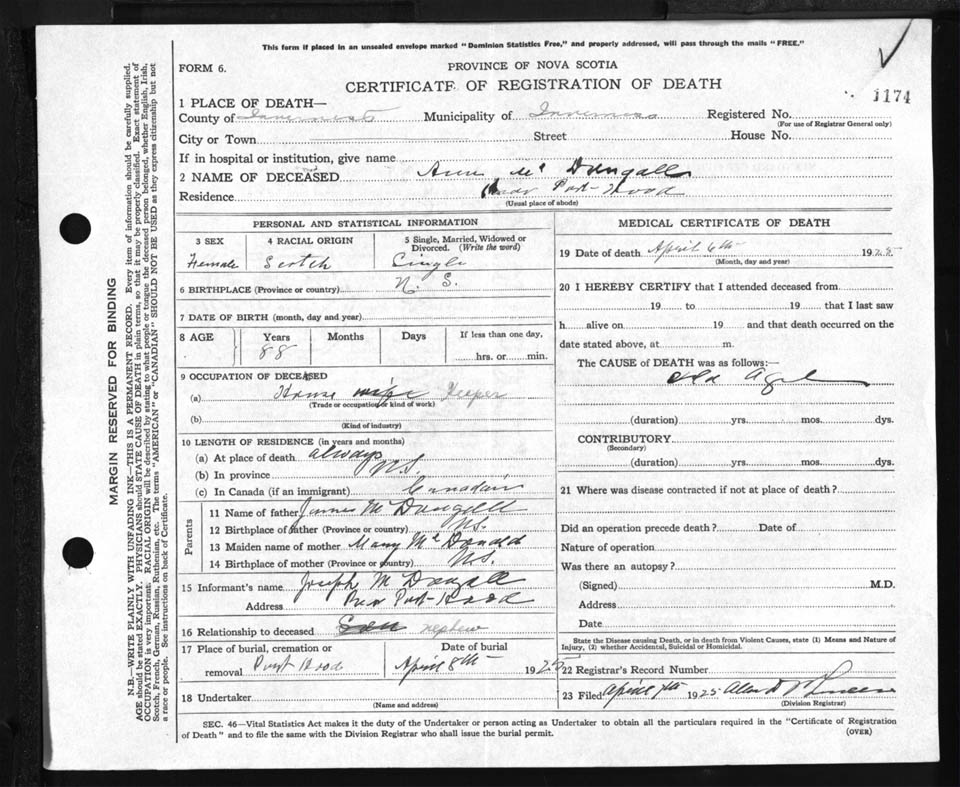 This form if placed in an unsealed envelope marked "Dominion Statistics Free," and properly addressed, will pass through the mails "FREE."
FORM 6.
PROVINCE OF NOVA SCOTIA
CERTIFICATE OF REGISTRATION OF DEATH
1174
1 PLACE OF DEATH—
County of Inverness Municipality of Inverness Registered No.
(For use of Registrar General only)
City or Town Street House No.
If in hospital or institution, give name
2 NAME OF DECEASED Ann Mc Dungall
Residence Port-Hood
(Usual place of abode)
PERSONAL AND STATISTICAL INFORMATION
3 SEX 4 RACIAL ORIGIN 5 Single, Married, Widowed or Divorced. (Write the word)
Female Scotch Cingle
6 BIRTHPLACE (Province or country) N. S.
7 DATE OF BIRTH (month, day and year)
8 AGE Years Months Days If less than one day,
88 hrs. or min.
9 OCCUPATION OF DECEASED
(a) House wife Keeper
(Trade or occupation or kind of work)
(b)
(Kind of industry)
10 LENGTH OF RESIDENCE (in years and months)
(a) At place of death always
(b) In province N.S.
(c) In Canada (if an immigrant) Canadain
Parents
11 Name of father James Mc Dungall
12 Birthplace of father (Province or country) N.S.
13 Maiden name of mother Mary Mc Donald
14 Birthplace of mother (Province or country) N.S.
15 Informant's name Joseph Mc Dougall
Address Port-Hood
16 Relationship to deceased Son nephew
17 Place of burial, cremation or Date of burial
removal Port Hood April 8th 1925
18 Undertaker
(Name and address)
MEDICAL CERTIFICATE OF DEATH
19 Date of death April 6th 1925
(Month, day and year)
20 I HEREBY CERTIFY that I attended deceased from
19 to 19 that I last saw
h alive on 19 and that death occurred on the
date stated above, at m.
The CAUSE of DEATH was as follows:—
Old Age
(duration) yrs. mos. dys.
CONTRIBUTORY
(Secondary)
(duration) yrs. mos. dys.
21 Where was disease contracted if not at place of death?
Did an operation precede death? Date of
Nature of operation
Was there an autopsy?
(Signed) M.D.
Address
Date
State the Disease causing Death, or in death from Violent Causes, state (1) Means and Nature of Injury, (2) whether Accidental, Suicidal or Homicidal.
22 Registrar's Record Number
23 Filed April 7th 1925 Alan D
(Division Registrar)
SEC. 46—Vital Statistics Act makes it the duty of the Undertaker or person acting as Undertaker to obtain all the particulars required in the "Certificate of Registration
of Death" and to file the same with the Division Registrar who shall issue the burial permit.
(OVER)
MARGIN RESERVED FOR BINDING
N.B.—WRITE PLAINLY WITH UNFADING INK—THIS IS A PERMANENT RECORD. Every item of information should be carefully supplied.
AGE should be stated EXACTLY. PHYSICIANS should STATE CAUSE OF DEATH in plain terms, so that it may be properly classified. Exact statement of
OCCUPATION is very important. RACIAL ORIGIN will be described by stating to what people or tongue the deceased person belonged, whether English, Irish,
Scotch, French, German, Russian, Ruthenian, etc. The terms "AMERICAN" or "CANADIAN" SHOULD NOT BE USED as they express citizenship but not
a race or people. See instructions on back of Certificate.